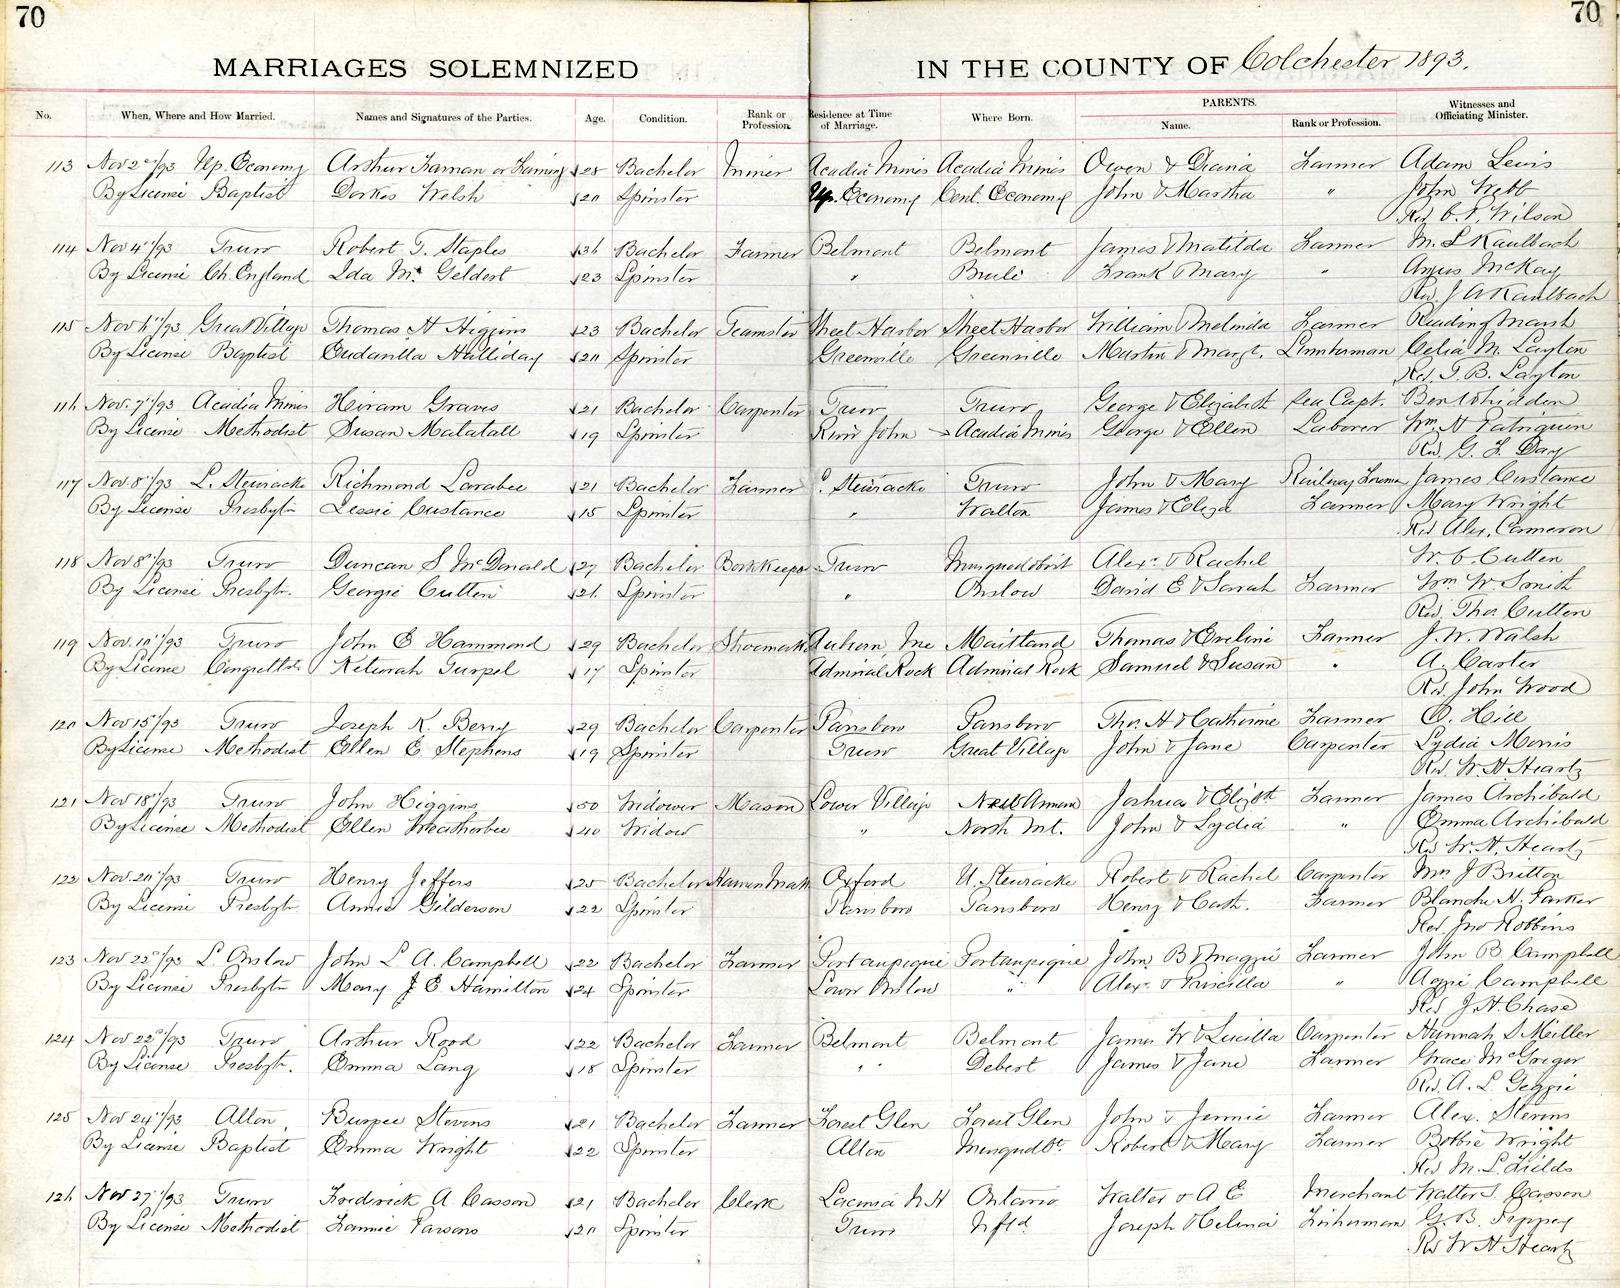 70
70
MARRIAGES SOLEMNIZED IN THE COUNTY OF Colchester 1893.
No. When, Where and How Married. Names and Signatures of the Parties. Age. Condition. Rank or Profession. Residence at Time of Marriage. Where Born. PARENTS. Name. Rank or Profession. Witnesses and Officiating Minister.
113 Nov 2"/93 Up. Economy Arthur Faman or Faming 28 Bachelor Miner Acadia Mines Acadia Mines Owen & Diana Farmer Adam Levis
By License Baptist Dorkes Welsh 20 Spinster Up. Economy Cent. Economy John & Martha " John Webb
Rev. C. P. Wilson
114 Nov 4"/93 Truro Robert T. Staples 36 Bachelor Farmer Belmont Belmont James & Matilda Farmer M. L Kaulbach
By License Ch. England Ida Geldert 23 Spinster " Brule Frank & Mary " Angus McKay
Rev. J A Kaulbach
115 Nov 6"/93 Great Village Thomas H Higgins 23 Bachelor Teamster Sheet Harbor Sheet Harbor William & Melinda Farmer Reading Marsh
By License Baptist Halliday 20 Spinster Greenville Greenville Martin & Margt. Lumberman Celia M. Layton
Rev. T. B. Layton
116 Nov. 7"/93 Acadia Mines Hiram Graves 21 Bachelor Carpenter Truro Truro George & Elizabeth Sea Capt. Ben Whidden
By License Methodist Susan Matatall 19 Spinster River John Acadia Mines George & Ellen Laborer Wm. H Patriquin
Rev. G. F. Day
117 Nov. 8"/93 L. Stewiacke Richmond Larabee 21 Bachelor Farmer L. Stewiacke Truro John & Mary Railway Foreman James Custance
By License Presbytn Lessie Custance 15 Spinster " Walton James & Eliza Farmer Mary Wright
Rev Alex. Cameron
118 Nov 8"/93 Truro Duncan S McDonald 27 Bachelor Bookkeeper Truro Musquodoboit Alexr & Rachel W. C. Cutten
By License Presbytn. Georgie Cutten 26 Spinster " Onslow David E & Sarah Farmer Wm. W. Smith
Rev Thos. Cutten
119 Nov. 10"/93 Truro John E Hammond 29 Bachelor Shoemaker Auburn, Me Maitland Thomas & Eveline Farmer J. W. Walsh
By License Keturah Turpel 17 Spinster Admiral Rock Admiral Rock Samuel & Susan " A. Carter
Rev. John Wood
120 Nov 15"/93 Truro Joseph K. Berry 29 Bachelor Carpenter Parrsboro Parrsboro Thos. H & Catherine Farmer O. Hill
By License Methodist Ellen E Stephens 19 Spinster Truro Great Village John & Jane Carpenter Lydia Morris
Rev. W. H Heartz
121 Nov 18"/93 Truro John Higgins 50 Widower Mason Lower Village New Annan Joshua & Elizbth Farmer James Archibald
By License Methodist Ellen Weatherbee 40 Widow " North Mt. John & Lydia " Emma Archibald
Rev W. H. Heartz
122 Nov. 20"/93 Truro Henry Jeffers 25 Bachelor Oxford U. Stewiacke Robert & Rachel Carpenter Mrs J Britton
By License Presbytn Annie Gilderson 22 Spinster Parrsboro Parrsboro Henry & Cath. Farmer Blanche H. Parker
Rev. Jno Robbins
123 Nov 22"/93 L. Onslow John L. A. Campbell 22 Bachelor Farmer Portaupique Portaupique John B & Maggie Farmer John B. Campbell
By License Presbytn Mary J E Hamilton 24 Spinster Lower Onslow " Alexr & Priscilla " Aggie Campbell
Rev J. H. Chase
124 Nov 22"/93 Truro Arthur Rood 22 Bachelor Farmer Belmont Belmont James W & Lucilla Carpenter Hannah S Meiller
By License Presbytn. Emma Lang 18 Spinster " Debert James & Jane Farmer Grace McGregor
Rev. A. L Geggie
125 Nov 24"/93 Alton, Burpee Stevens 21 Bachelor Farmer Forest Glen Forest Glen John & Jennie Farmer Alex. Stevens
By License Baptist Emma Wright 22 Spinster Alton Musquodbt. Robert & Mary Farmer Bobbie Wright
Rev M. L. Fields
126 Nov 27"/93 Truro Frederick A. Casson 21 Bachelor Clerk Laconia N H Ontario Walter & A E Merchant Walter S. Casson
By License Methodist Fannie Parsons 20 Spinster Truro Nfld. Joseph & Selina Fisherman G. B. Pippey
Rev W H Heartz